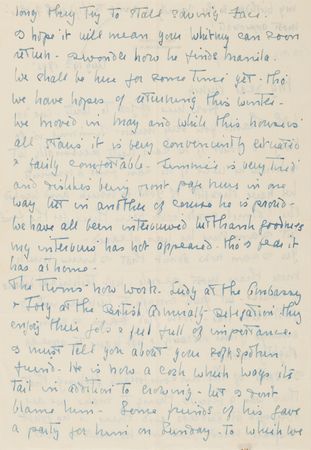 long they try to stall saving face.
I hope it will mean your Whitney can soon
return. I wonder how he finds Manila.
We shall be here for some time yet. tho'
we have hopes of returning this winter.
We moved in May and while this house is
all stairs it is very conveniently situated
& fairly comfortable. Tommie is very tired
and dislikes being front page news in one
way but in another of course he is proud.
We have all been interviewed but thank goodness
my interview has not appeared. tho' I fear it
has at home.
The Twins now work. Judy at the Embassy
& Tory at the British Admiralty Delegation they
enjoy their jobs & feel full of importance.
I must tell you about your soft spoken
friend. He is now a cock which wags its
tail in addition to crowing. but I don't
blame him. Some friends of his gave
a party for him on Sunday. to which we